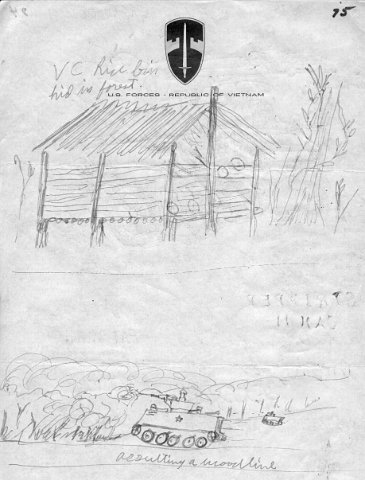 75
V.C. Rice bin
hid in forest.
U.S. FORCES - REPUBLIC OF VIETNAM
assulting a woodline